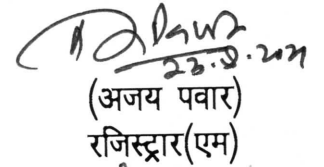 23.8.2021
(अजय पवार)
रजिस्ट्रार(एम)